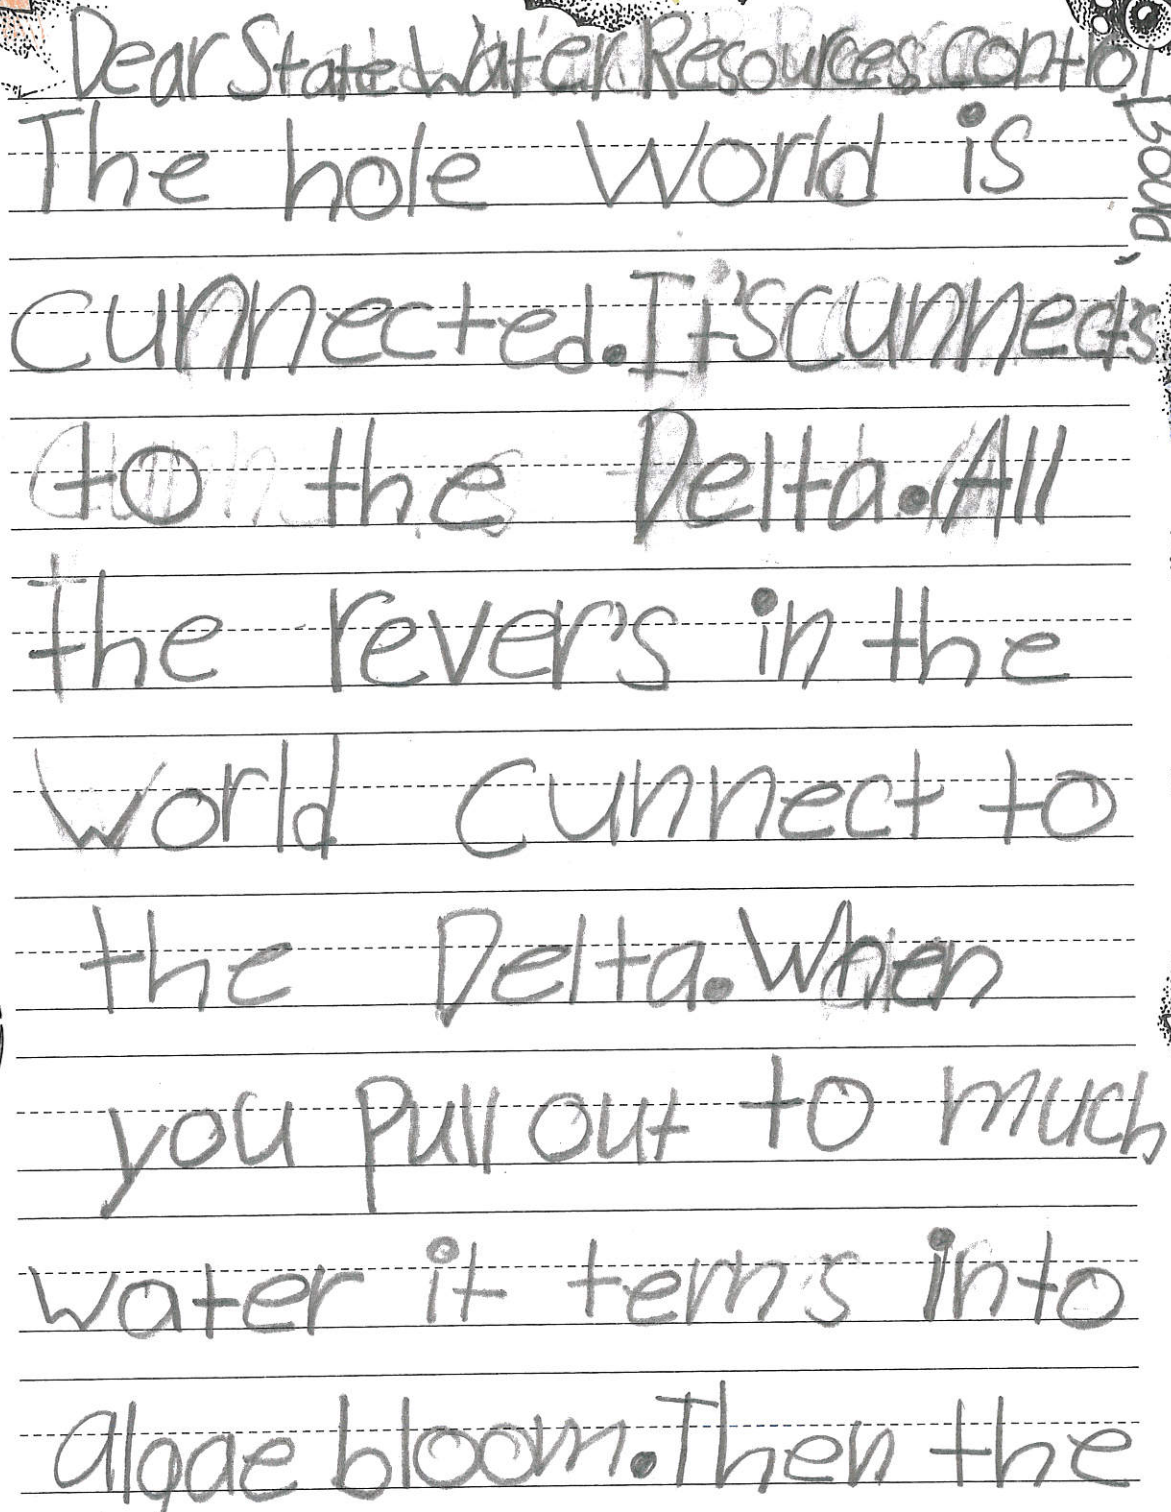 Dear State Water Resources control Board,
The hole World is
cunnected. It's cunnects
to the Delta. All
the rever's in the
World cunnect to
the Delta. When
you pull out to much
water it tern's into
algae bloom. Then the